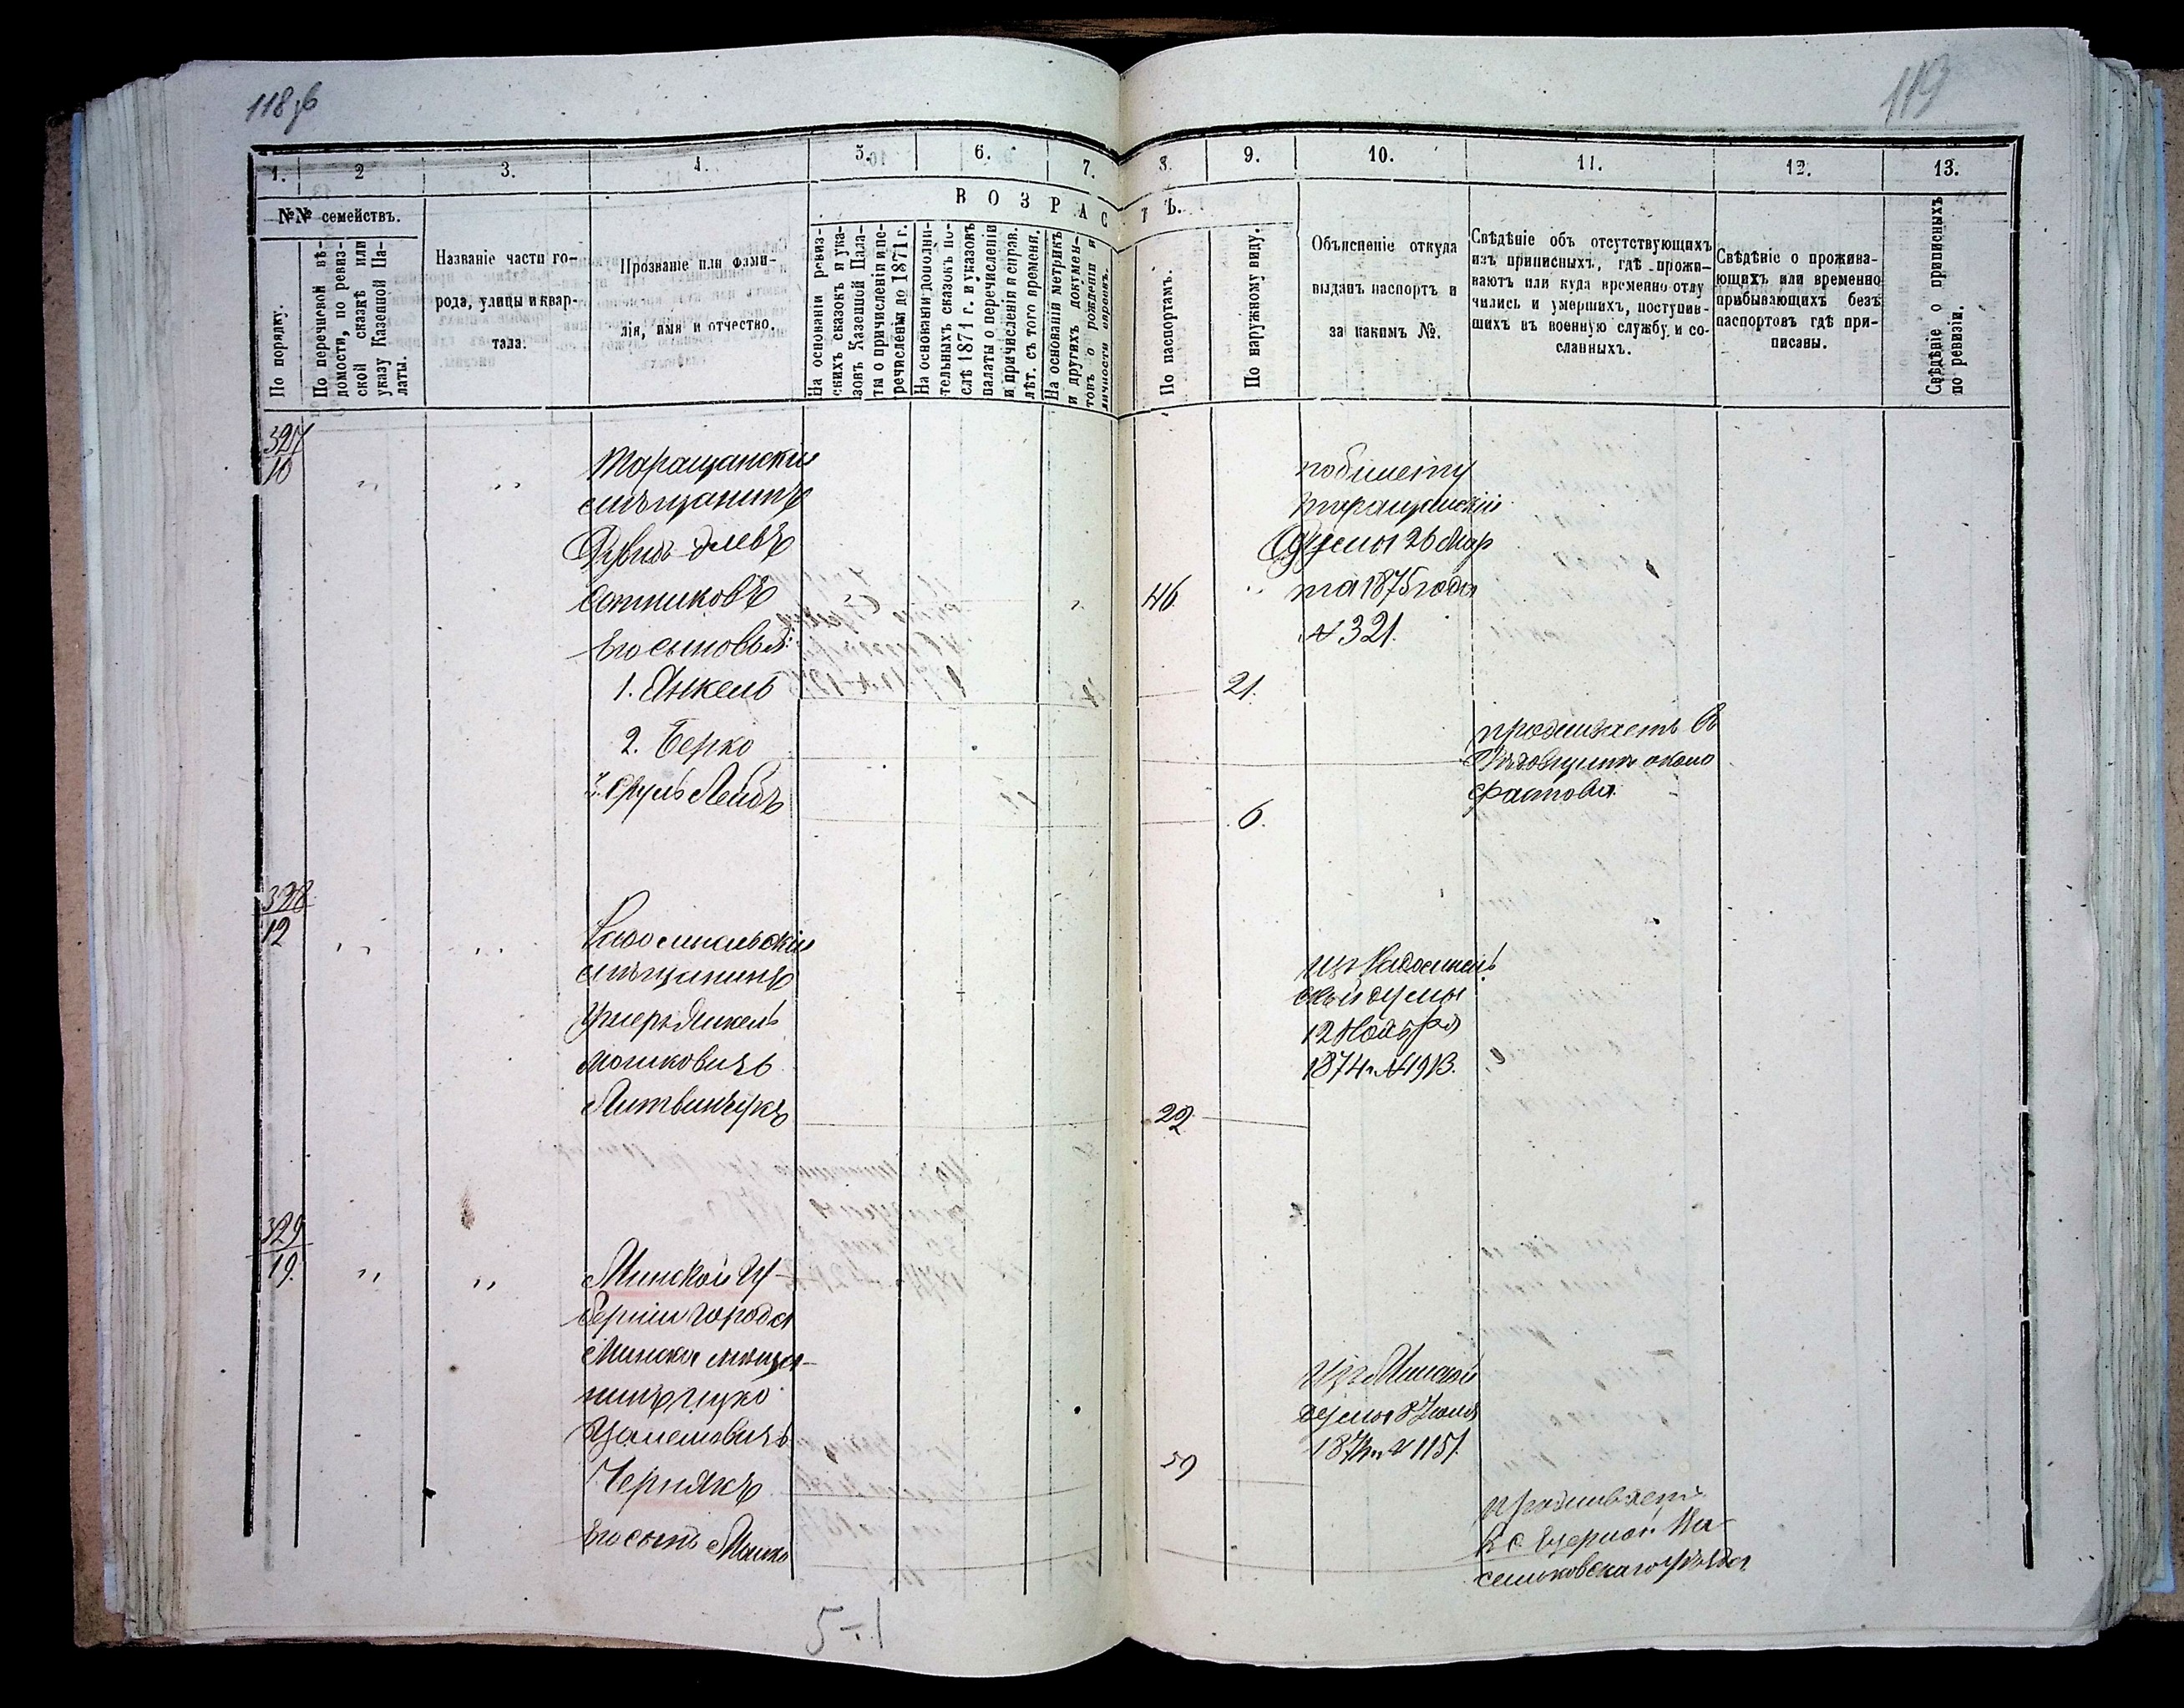 118 об
119
1.
2
3.
4.
5.
6.
7.
8.
9.
10.
11.
12.
13.
№№ семействъ.
ВОЗРАСТЪ.
По порядку.
По перечневой вѣ-
домости, по ревиз-
ской сказкѣ или
указу Казенной Па-
латы.
Названіе части го-
рода, улицы и квар-
тала.
Прозваніе или фами-
лія, имя и отчество.
На основаніи ревиз-
скихъ сказокъ и ука-
зовъ Казенной Пала-
ты о причисленіи и пе-
речисленіи до 1871 г.
На основаніи дополни-
тельныхъ сказокъ по-
слѣ 1871 г. и указовъ
палаты о перечисленіи
и причисленіи и справ.
лѣт. съ того времени.
На основаніи метрикъ
и другихъ докумен-
товъ о рожденіи и
личности евреевъ.
По паспортамъ.
По наружному виду.
Объясненіе откуда
выданъ паспортъ и
за какимъ №.
Свѣдѣніе объ отсутствующихъ
изъ приписныхъ, гдѣ прожи-
ваютъ или куда временно отлу
чились и умершихъ, поступив-
шихъ въ военную службу, и со-
сланныхъ.
Свѣдѣніе о прожива-
ющихъ или временно
прибывающихъ безъ
паспортовъ гдѣ при-
писаны.
Свѣдѣніе о приписныхъ
по ревизіи.
327
10
Таращанскій
мѣщанинъ
Сотниковъ
Его сыновья:
1. Янкель
2. Берко
3. Сруль Лейбъ
46.
21.
6.
по билету
Таращанской
Думы 26 Мар
та 1875 года
№ 321.
проживаетъ въ
около
Фастова
328
12
Радомысльскій
мѣщанинъ
Мошковичъ
Литвинчукъ
22
изъ Радомысль
ской думы
12 Ноября
1874 г. № 1913.
329
19.
Минской Гу-
берніи города
Минска мѣща-
нинъ Ицко
Чернякъ
Его сынъ Мошко
59
Изъ Минской
думы 8 Іюня
№ 1151.
проживаетъ
в с. Ва-
сильковскаго уѣзда
5-1